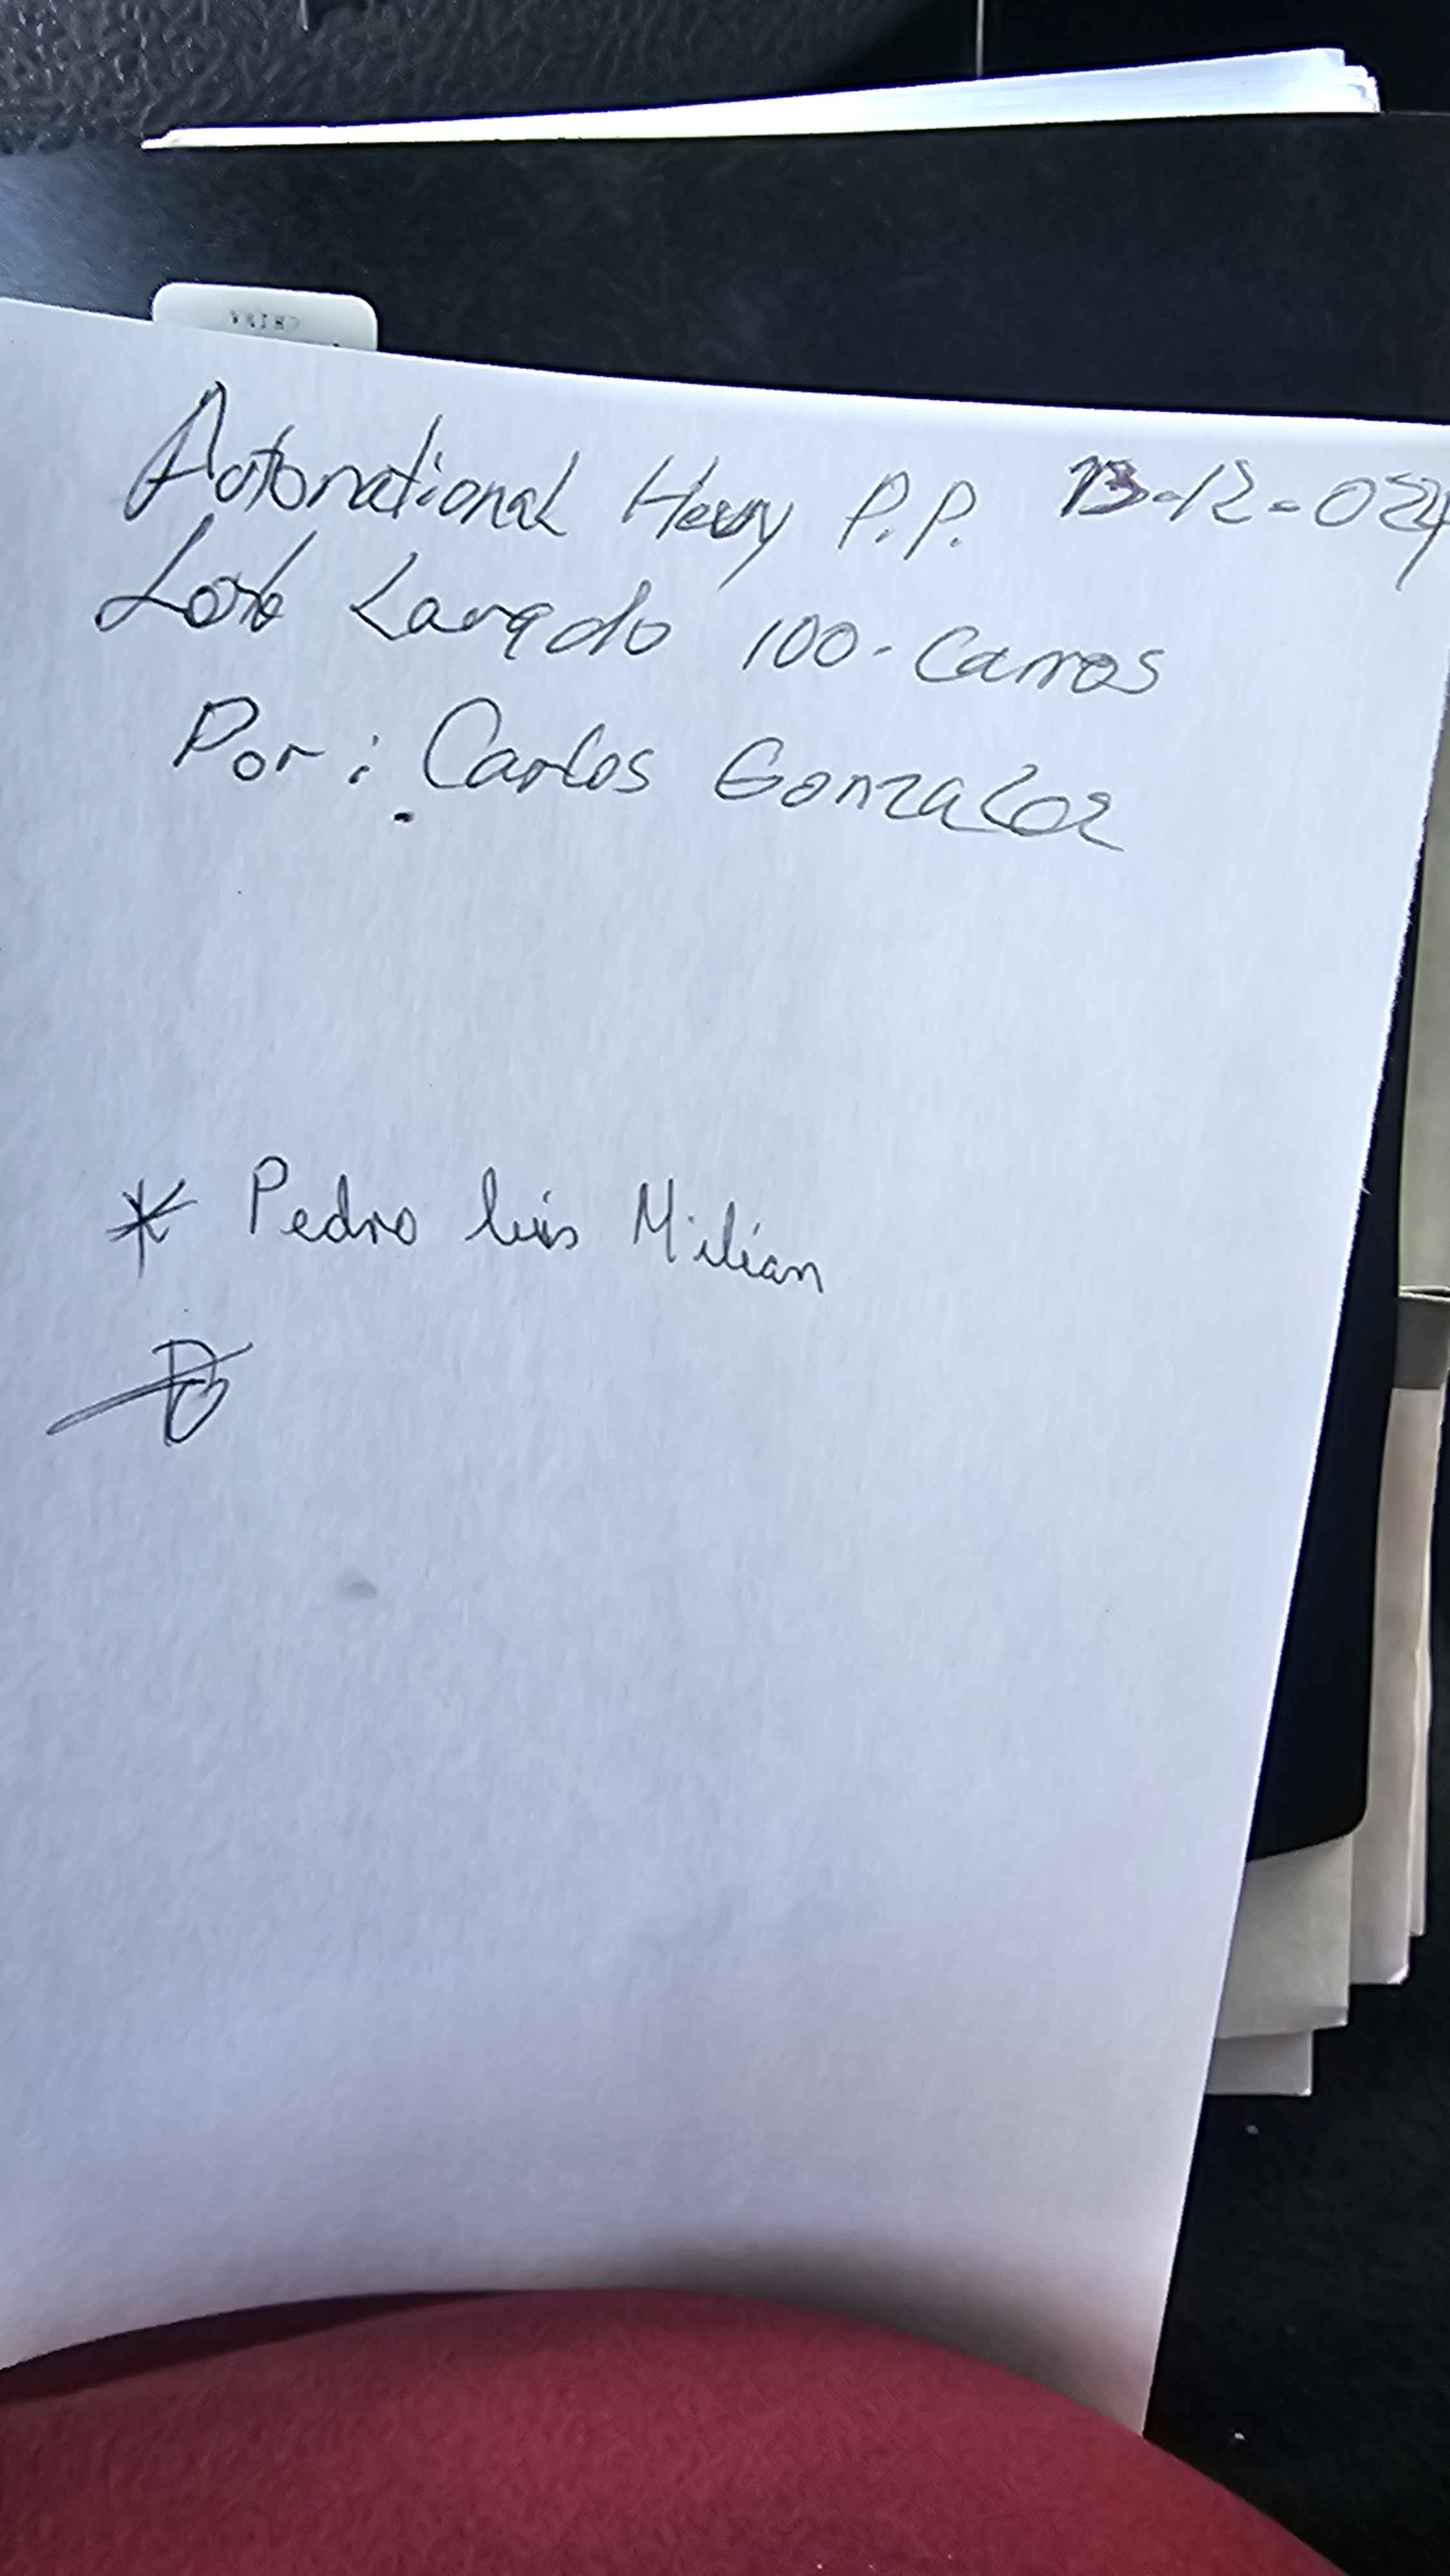 Autonational Hevy P.P. 13-12-024
Laredo 100-Carros
Por: Carlos Gonzalez
* Pedro luis Milian